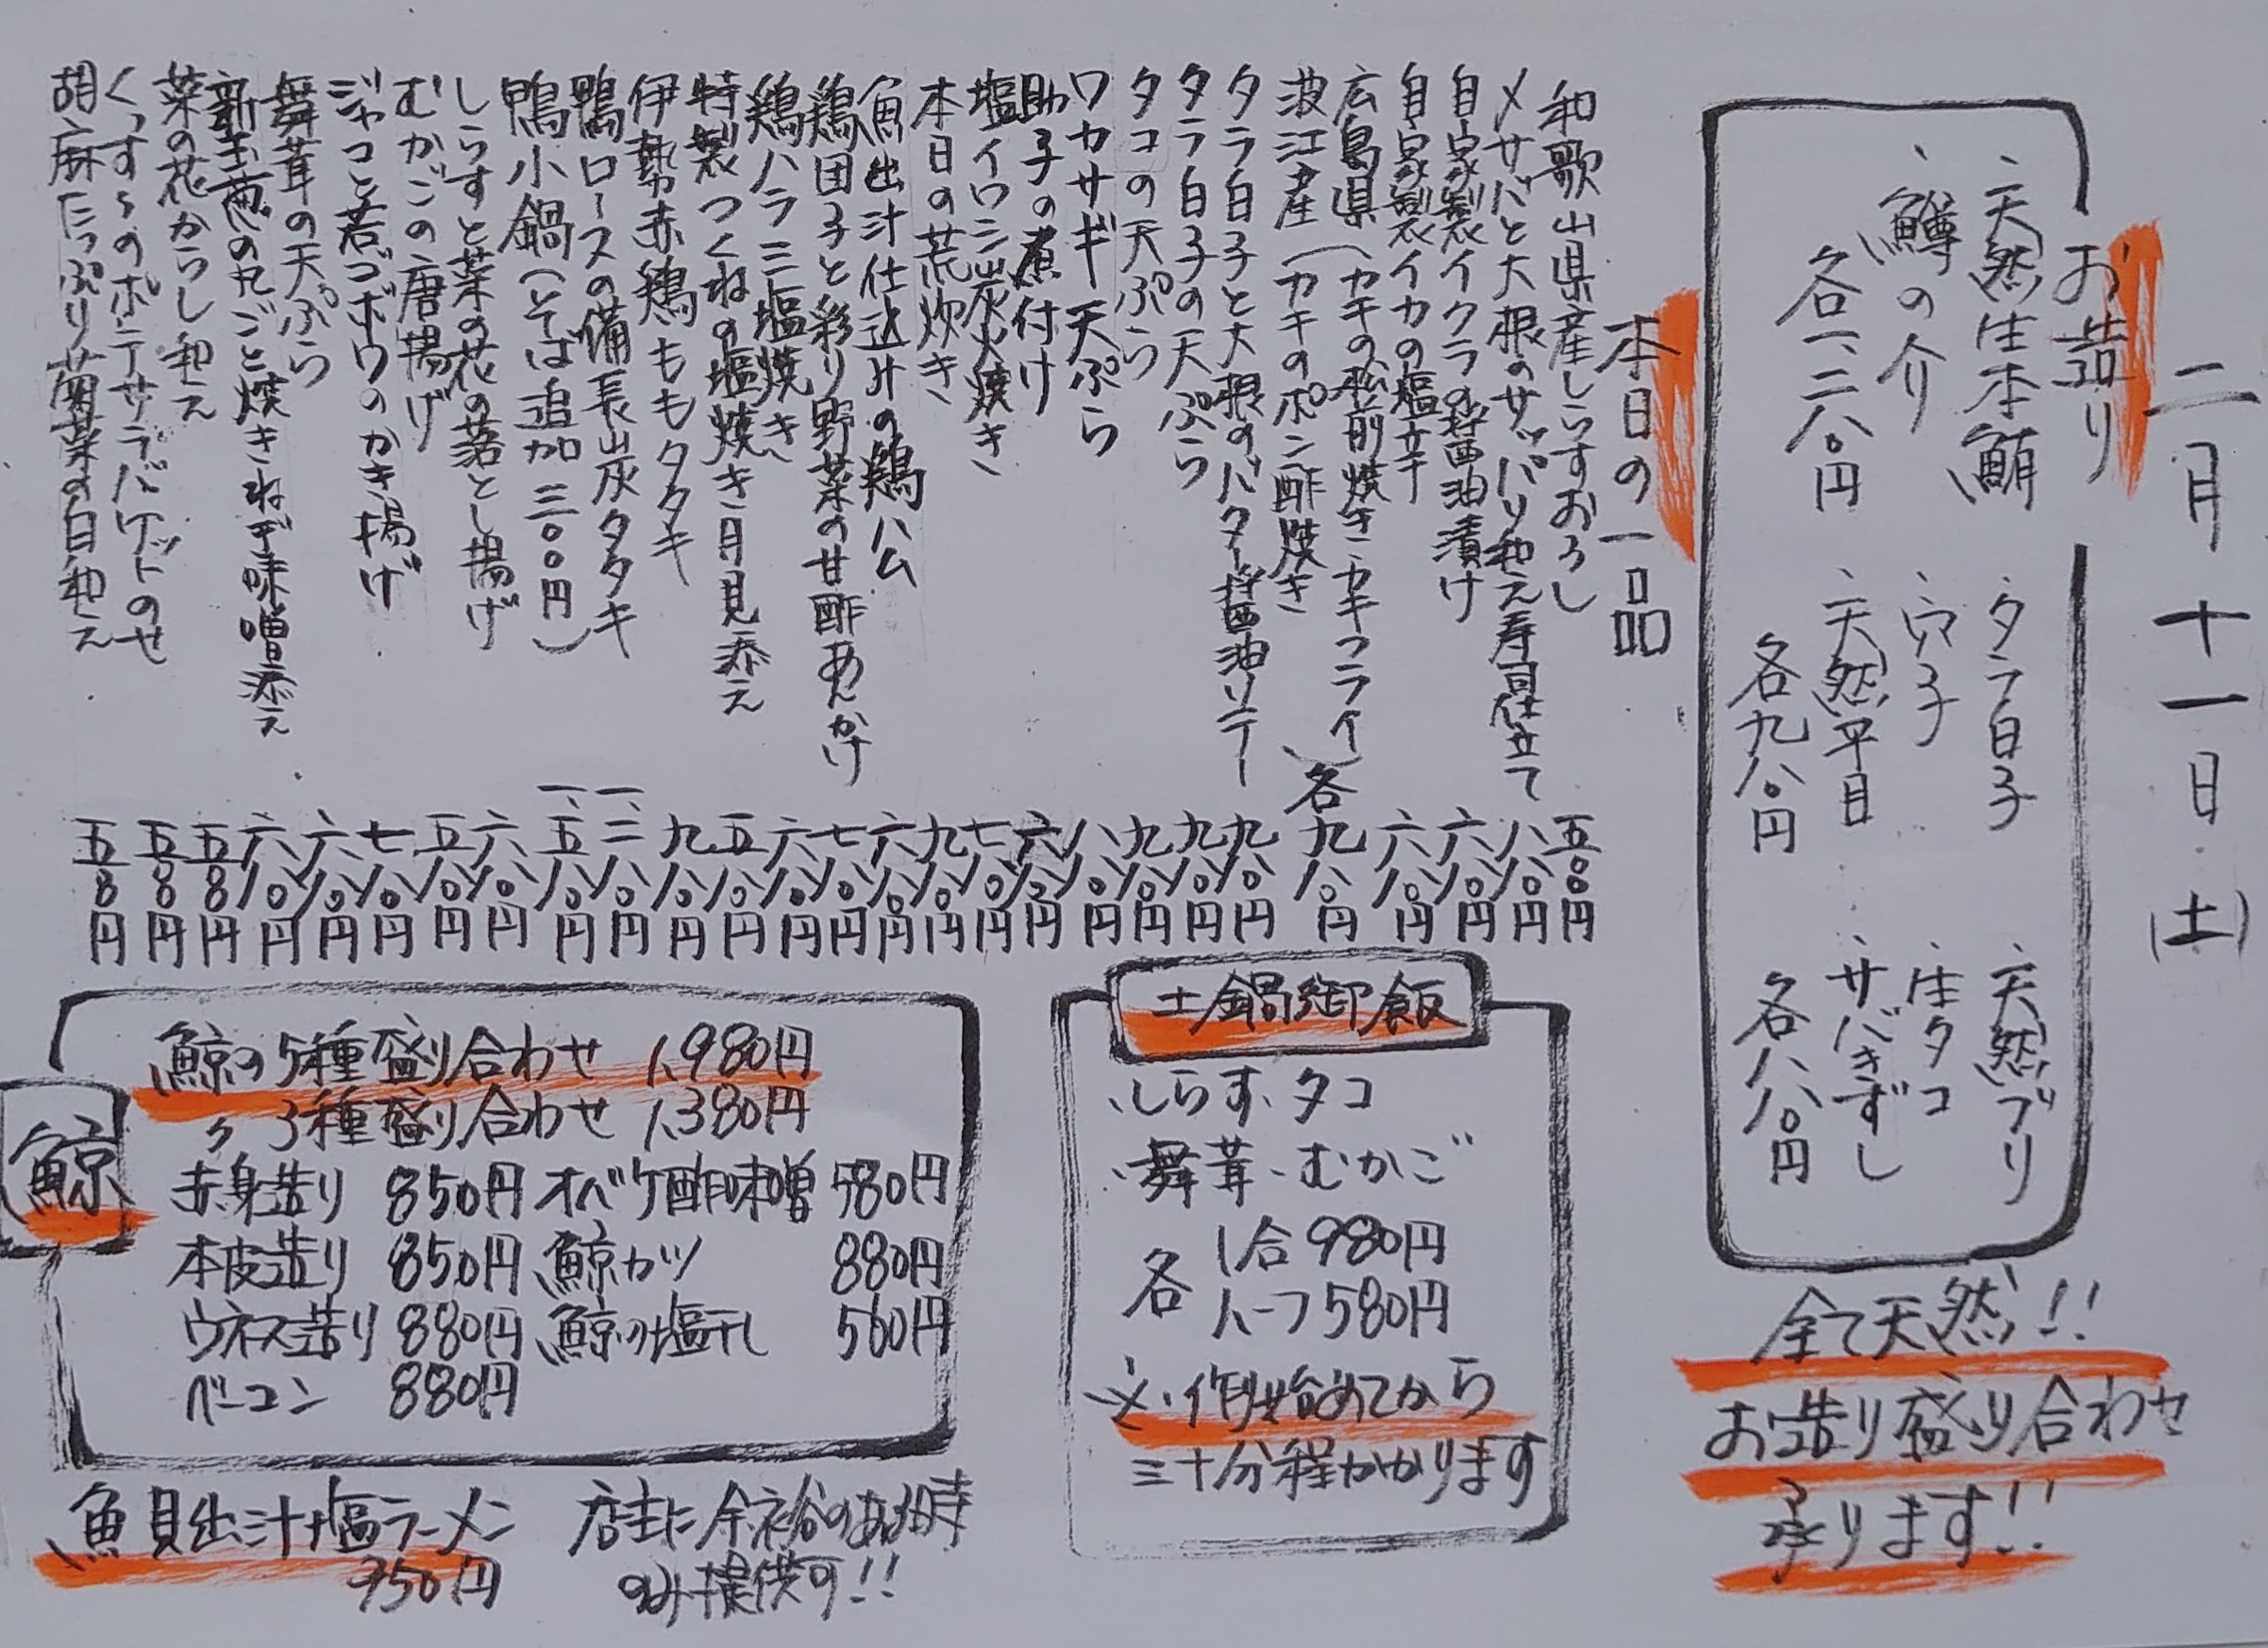 二月十一日(土)
お造り
、天然生本鮪
、鱒の介
各一、二八〇円
、タラ白子
、穴子
、天然平目
各九八〇円
、天然ブリ
、生タコ
、サバきずし
各八八〇円
全て天然!!
お造り盛り合わせ
承ります!!
本日の一品
和歌山県産しらすおろし 五〇〇円
〆サバと大根のサッパリ和え寿司仕立て 八八〇円
自家製イクラの醤油漬け 六八〇円
自家製イカの塩辛 六八〇円
広島県(カキの松前焼き、カキフライ
波江産(カキのポン酢焼き、各 九八〇円
タラ白子と大根のバター醤油ソテー 九八〇円
タラ白子の天ぷら 九八〇円
タコの天ぷら 九八〇円
ワカサギ天ぷら 八八〇円
助子の煮付け 六八〇円
塩イワシ炭火焼き 七八〇円
本日の荒炊き 九八〇円
魚出汁仕込みの鶏ハム 六八〇円
鶏団子と彩り野菜の甘酢あんかけ 七八〇円
鶏ハラミ塩焼き 六八〇円
特製つくねの塩焼き月見添え 五八〇円
伊勢赤鶏ももタタキ 九八〇円
鴨ロースの備長炭タタキ 一、二八〇円
鴨小鍋(そば追加三〇〇円) 一、五八〇円
しらすと菜の花の落とし揚げ 六八〇円
むかごの唐揚げ 五八〇円
ジャコと若ゴボウのかき揚げ 七八〇円
舞茸の天ぷら 六八〇円
新玉葱の丸ごと焼きねぎ味噌添え 六八〇円
菜の花からし和え 五八〇円
くっすゝのポテサラバゲットのせ 五八〇円
胡麻たっぷり菊菜の白和え 五八〇円
土鍋御飯
、しらす、タコ
、舞茸、むかご
各 1合980円
ハーフ580円
※、作り始めてから
三十分程かかります
鯨
鯨の5種盛り合わせ 1,980円
〃 3種盛り合わせ 1,380円
赤身造り 850円 オバケ酢味噌 580円
本皮造り 850円 鯨カツ 880円
ウネス造り 880円 鯨の塩干し 560円
ベーコン 880円
魚貝出汁塩ラーメン
950円
店主に余裕のある時
のみ提供可!!